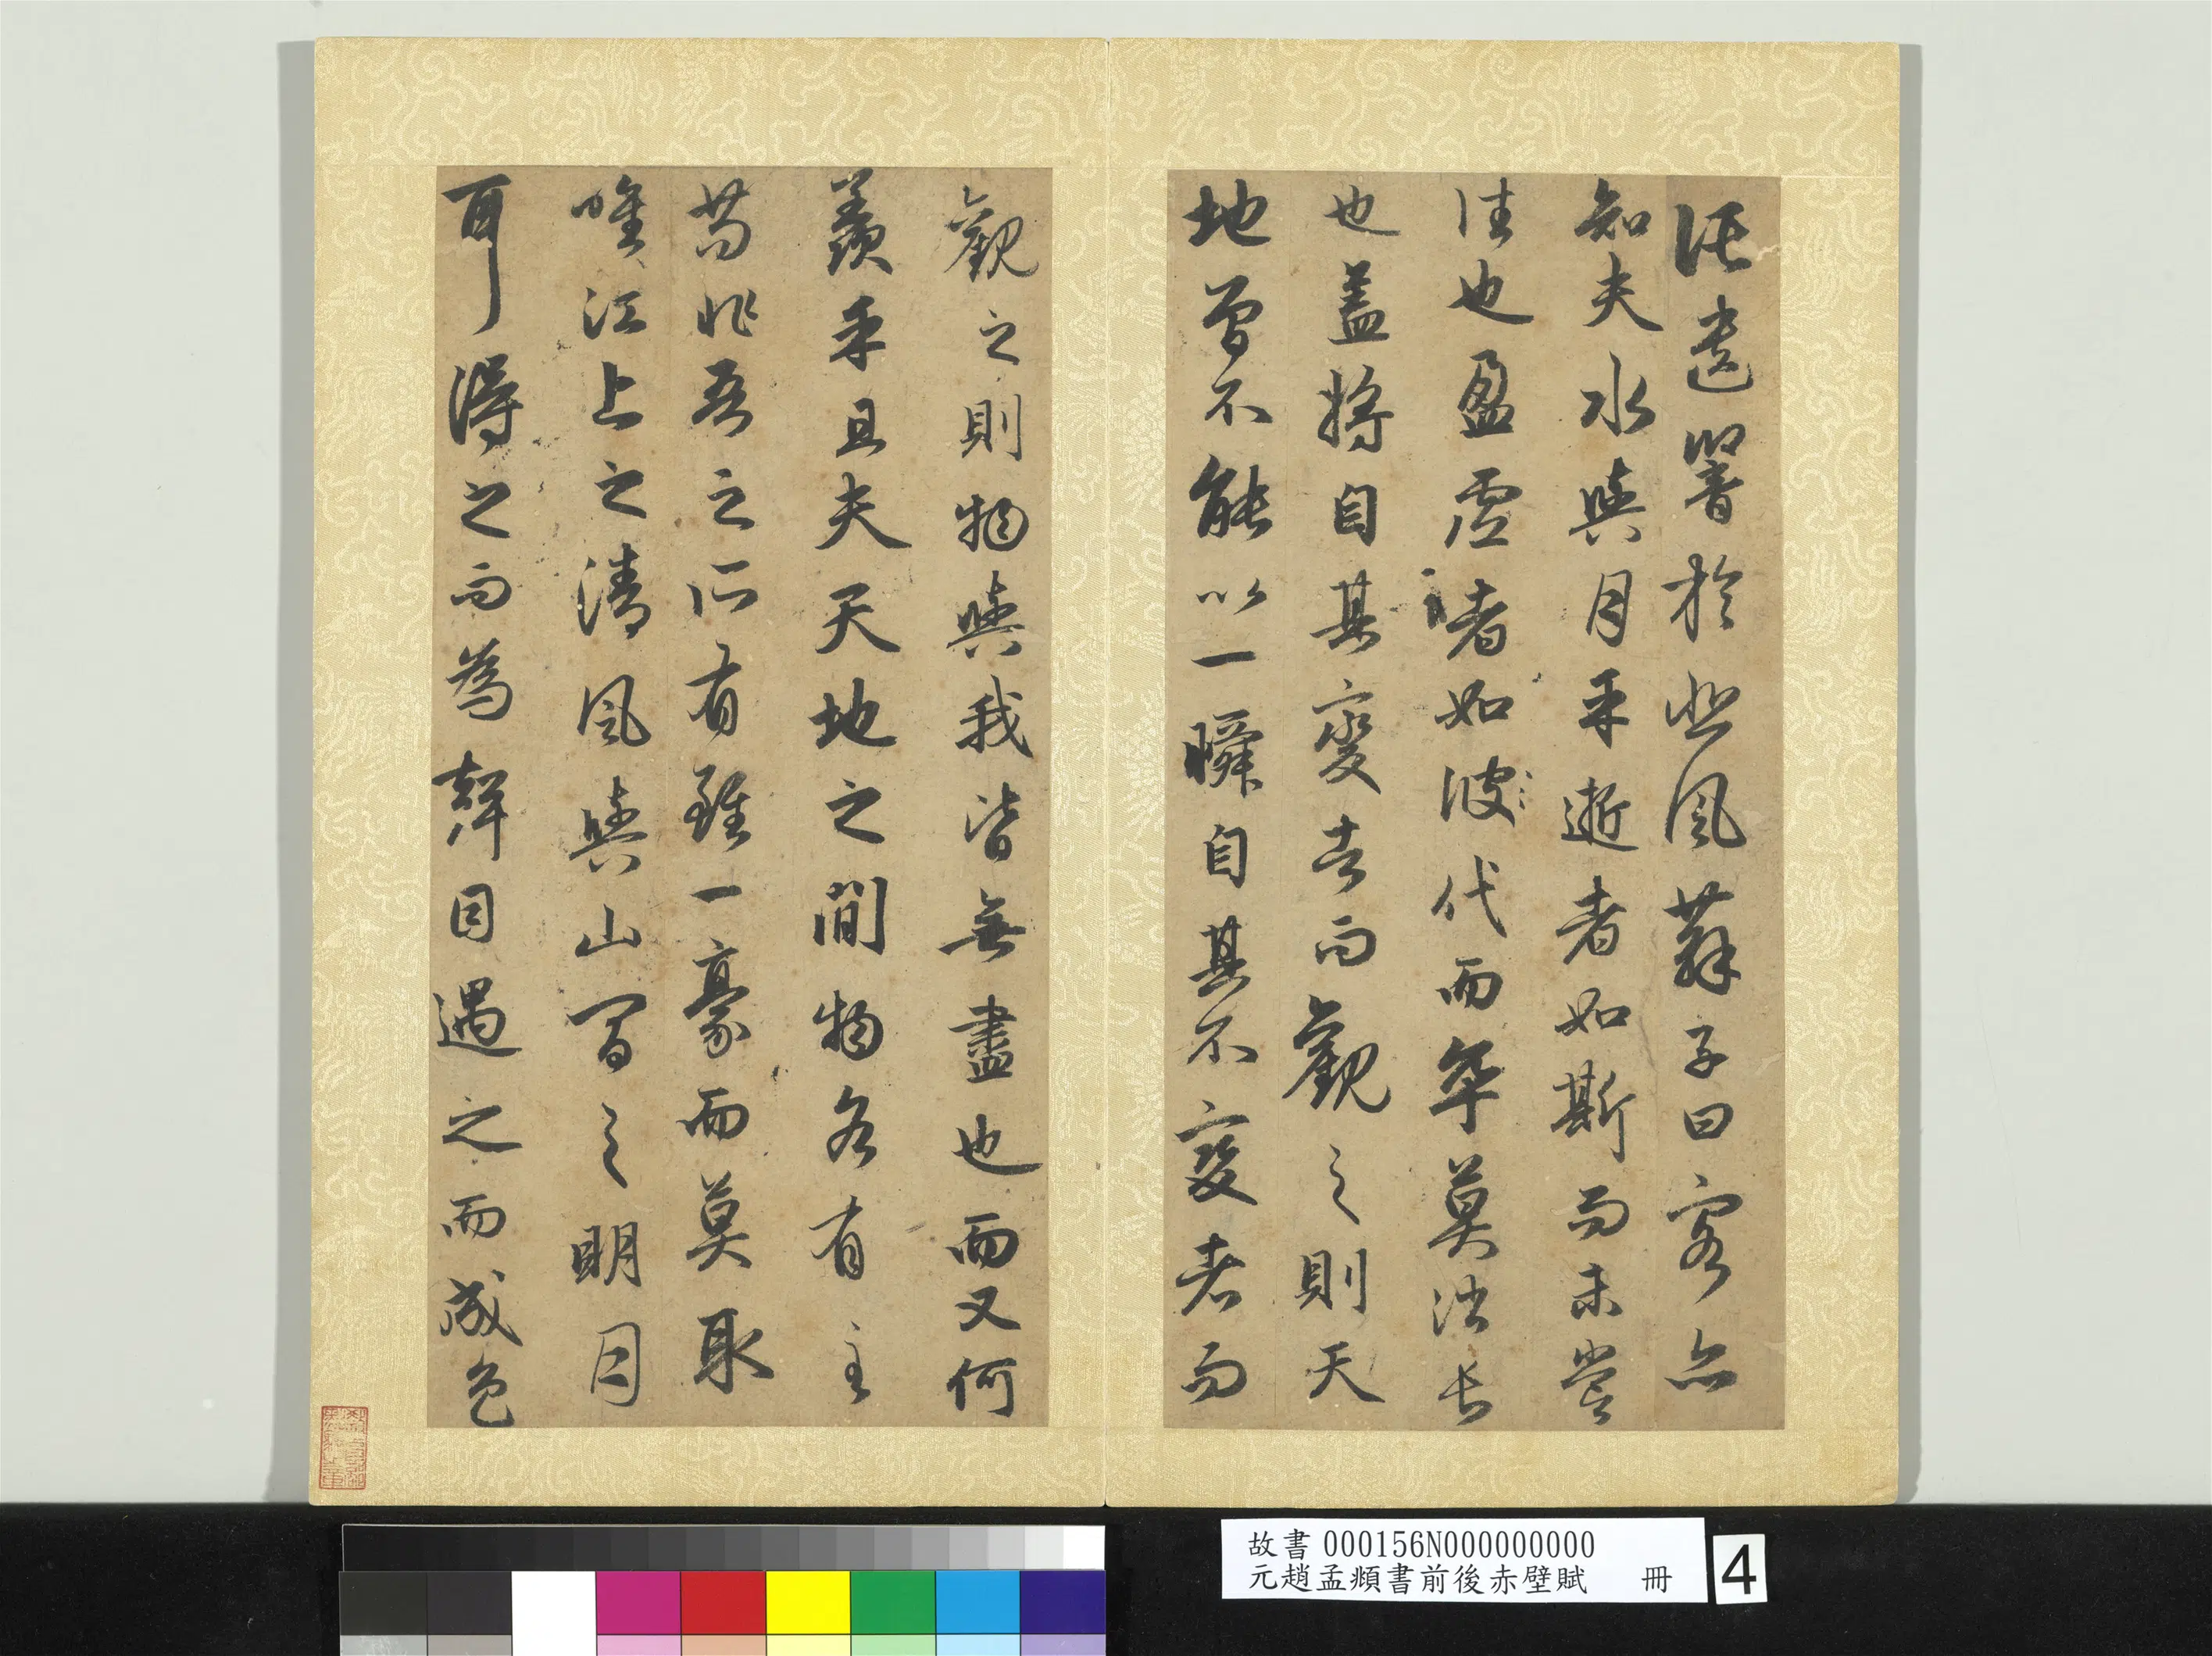 託遺響於悲風蘇子曰客亦
知夫水與月乎逝者如斯而未嘗
往也盈虛者如彼代而卒莫消長
也蓋將自其變者而觀之則天
地曾不能以一瞬自其不變者而
觀之則物與我皆無盡也而又何
羨乎且夫天地之間物各有主
苟非吾之所有雖一豪而莫取
唯江上之清風與山間之明月
耳得之而為聲目遇之而成色
故書 000156N000000000
元趙孟頫書前後赤壁賦 冊
4